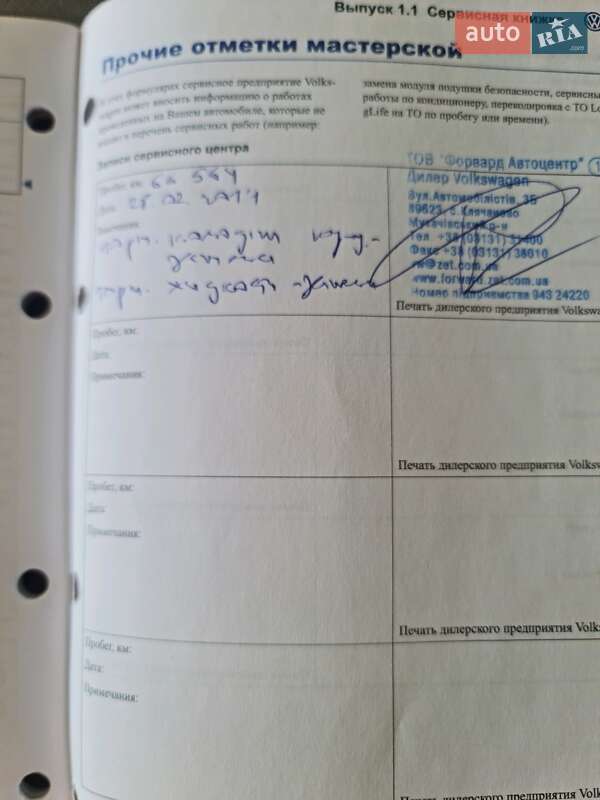 Выпуск 1.1 Сервисная книжка
auto RIA .com
Прочие отметки мастерской
этих формулярах сервисное предприятие Volks-
может вносить информацию о работах
на Вашем автомобиле, которые не
в перечень сервисных работ (например:
замена модуля подушки безопасности, сервисные
работы по кондиционеру, перекодировка с ТО Lo
gLife на ТО по пробегу или времени).
Записи сервисного центра
Пробег, км:
Дата:
торм. жидкость -
ТОВ "Форвард Автоцентр"
Дилер Volkswagen
Вул.Автомобілістів, 3Б
89623, с.Ключаново
Мукачівський р-н
Тел. +38 (03131) 31400
Факс +38 (03131) 38010
vw@zet.com.ua
www.forward.zet.com.ua
Номер підприємства 943 24220
Печать дилерского предприятия Volkswa
Пробег, км:
Дата:
Примечания:
Печать дилерского предприятия Volksw
Пробег, км:
Дата:
Примечания:
Печать дилерского предприятия Volk
Пробег, км:
Дата:
Примечания:
Печать дилерского предприятия Vol